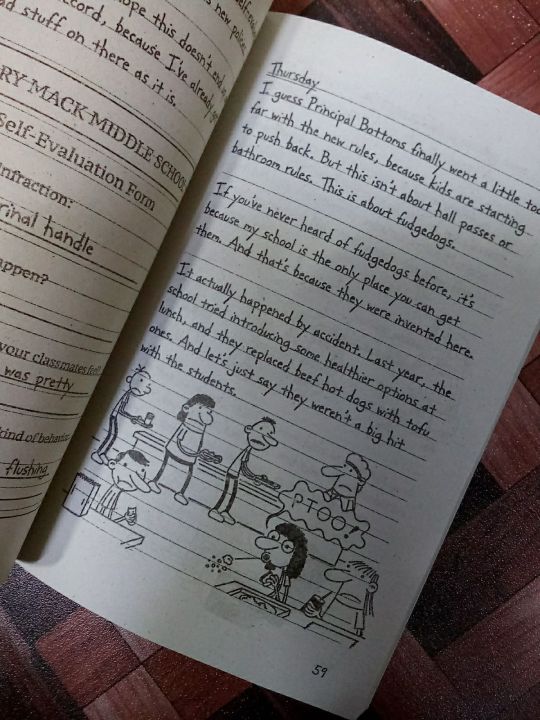 ope this doesn't end
ecord, because I've already
ad stuff on there as it is.
RY MACK MIDDLE SCHOOL
Self-Evaluation Form
nfraction:
rinal handle
appen?
your classmates feel?
was pretty
kind of behavior
flushing.
Thursday
I guess Principal Bottoms finally went a little too
far with the new rules, because kids are starting
to push back. But this isn't about hall passes or
bathroom rules. This is about fudgedogs.
If you've never heard of fudgedogs before, it's
because my school is the only place you can get
them. And that's because they were invented here.
It actually happened by accident. Last year, the
school tried introducing some healthier options at
lunch, and they replaced beef hot dogs with tofu
ones. And let's just say they weren't a big hit
with the students.
PTOO!
59